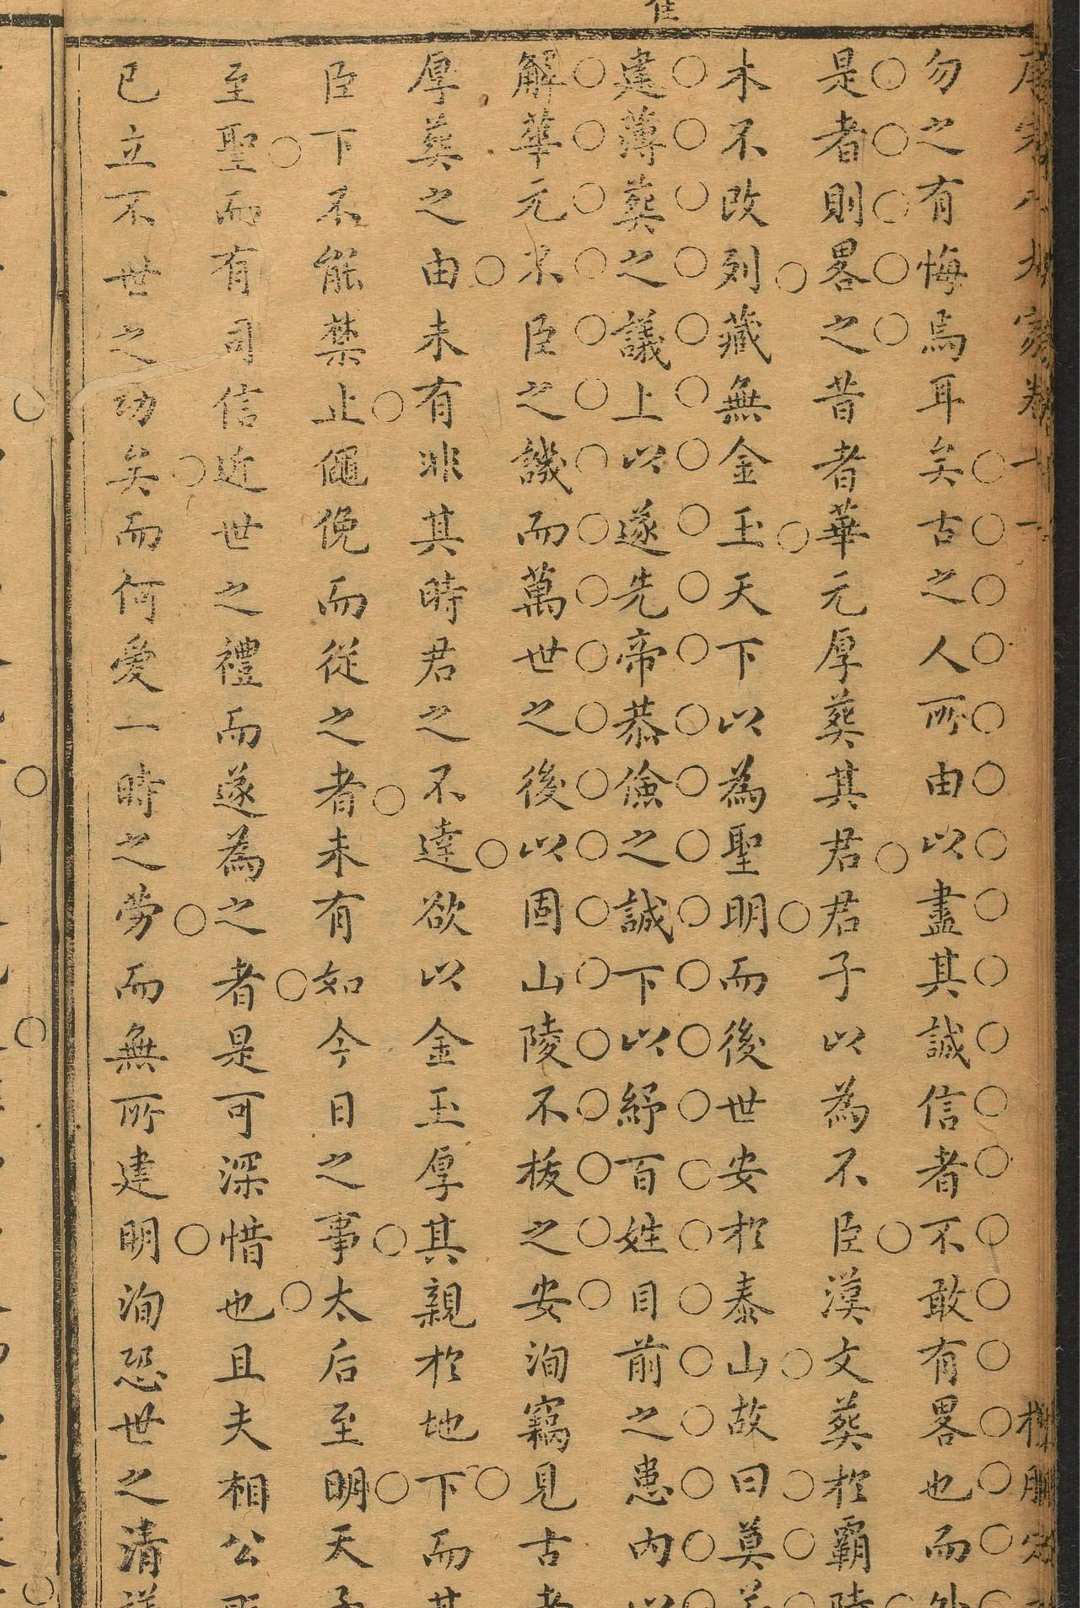 勿之有悔焉耳矣古之人所由以盡其誠信者不敢有畧也而外
是者則畧之昔者華元厚葬其君君子以為不臣漢文葬於霸陵
木不改列藏無金玉天下以為聖明而後世安於泰山故曰莫
建薄葬之議上以遂先帝恭儉之誠下以紓百姓目前之患内以
解華元不臣之譏而萬世之後以固山陵不拔之安洵竊見古者
厚葬之由未有非其時君之不達欲以金玉厚其親於地下而其
臣下不能禁止僶俛而從之者未有如今日之事太后至明天子
至聖而有司信近世之禮而遂為之者是可深惜也且夫相公既
已立不世之功矣而何愛一時之勞而無所建明洵恐世之清議